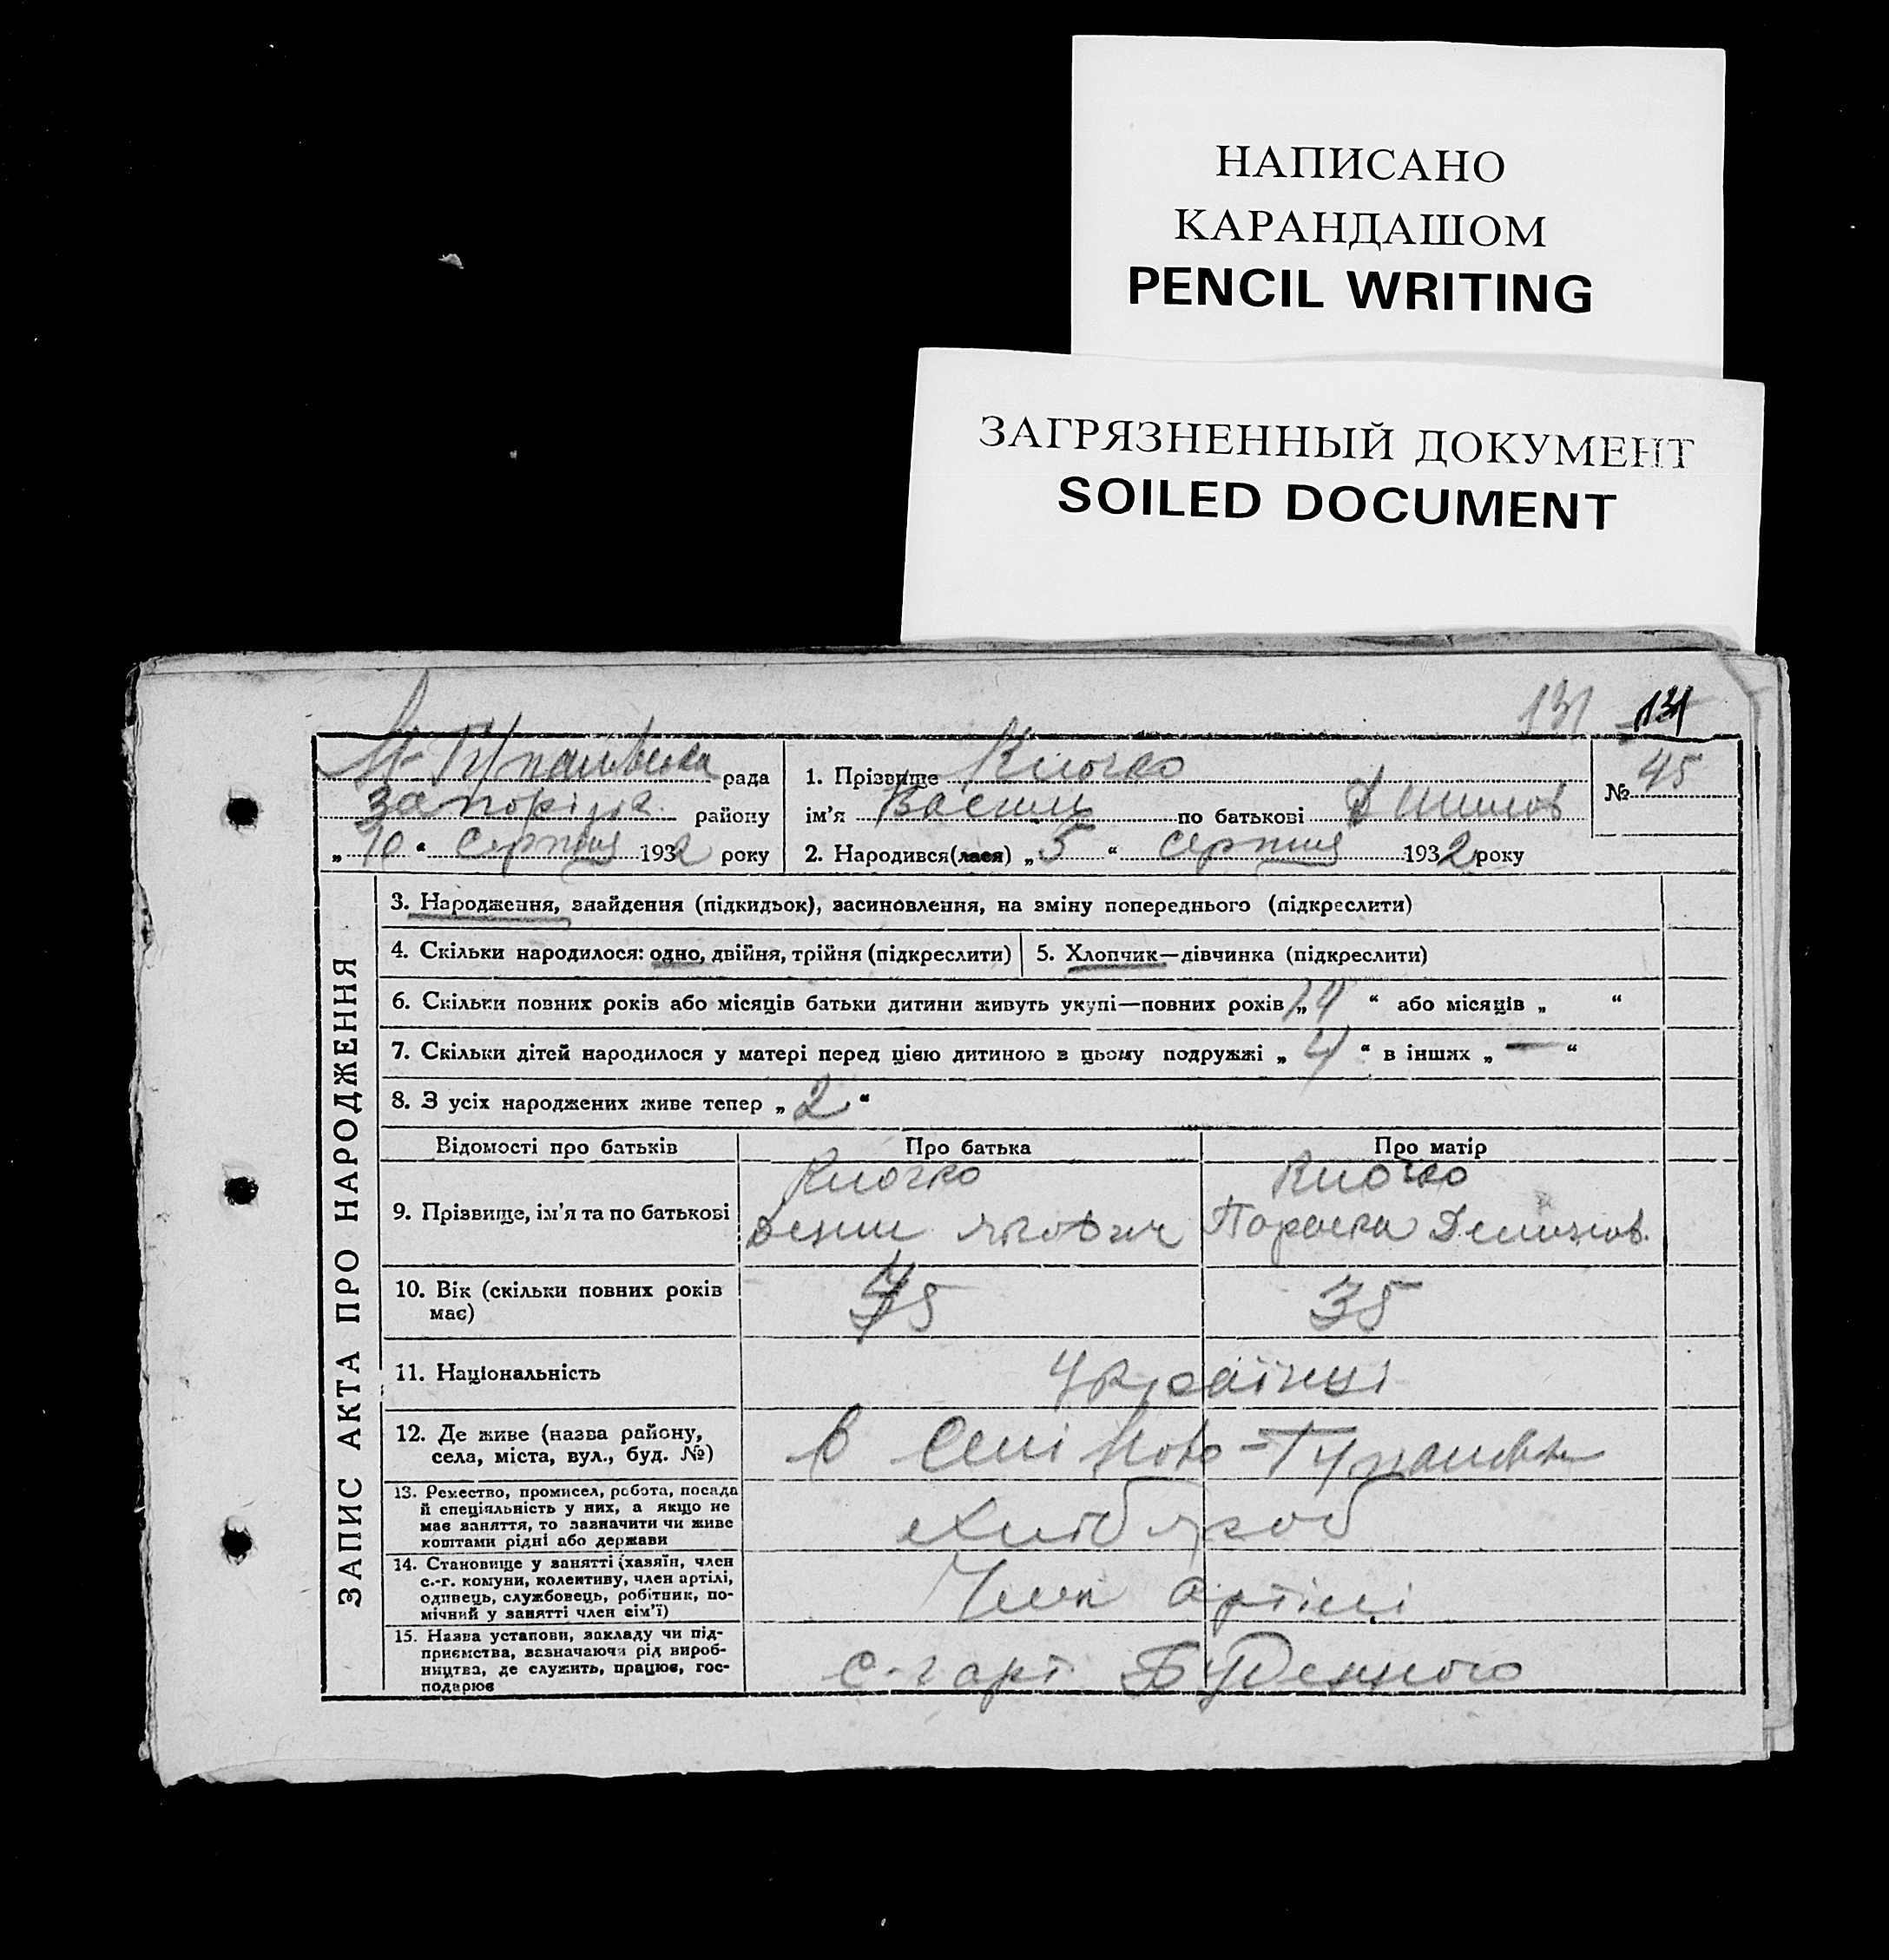 НАПИСАНО
КАРАНДАШОМ
PENCIL WRITING
ЗАГРЯЗНЕННЫЙ ДОКУМЕНТ
SOILED DOCUMENT
131 131
рада
1. Прізвище Клочко
№ 45
Запорізьк. району
ім'я Василь по батькові
„ 10 “ Серпня 1932 року
2. Народився(лася) „ 5 “ серпня 1932 року
ЗАПИС АКТА ПРО НАРОДЖЕННЯ
3. Народження, знайдення (підкидьок), засиновлення, на зміну попереднього (підкреслити)
4. Скільки народилося: одно, двійня, трійня (підкреслити)
5. Хлопчик—дівчинка (підкреслити)
6. Скільки повних років або місяців батьки дитини живуть укупі—повних років „ 14 “ або місяців „ “
7. Скільки дітей народилося у матері перед цією дитиною в цьому подружжі „ 4 “ в інших „ — “
8. З усіх народжених живе тепер „ 2 “
Відомості про батьків
Про батька
Про матір
9. Прізвище, ім'я та по батькові
Клочко
Якович
Клочко
Параска
10. Вік (скільки повних років
має)
45
35
11. Національність
Українці
12. Де живе (назва району,
села, міста, вул., буд. №)
в селі Ново-Гупалівка
13. Ремество, промисел, робота, посада
й спеціяльність у них, а якщо не
має заняття, то зазначити чи живе
коштами рідні або держави
Хлібороб
14. Становище у занятті (хазяїн, член
с.-г. комуни, колективу, член артілі,
одинець, службовець, робітник, по-
мічний у занятті член сім'ї)
Член артілі
15. Назва установи, закладу чи під-
приємства, зазначаючи рід вироб-
ництва, де служить, працює, гос-
подарює
с-г арт. Буденного